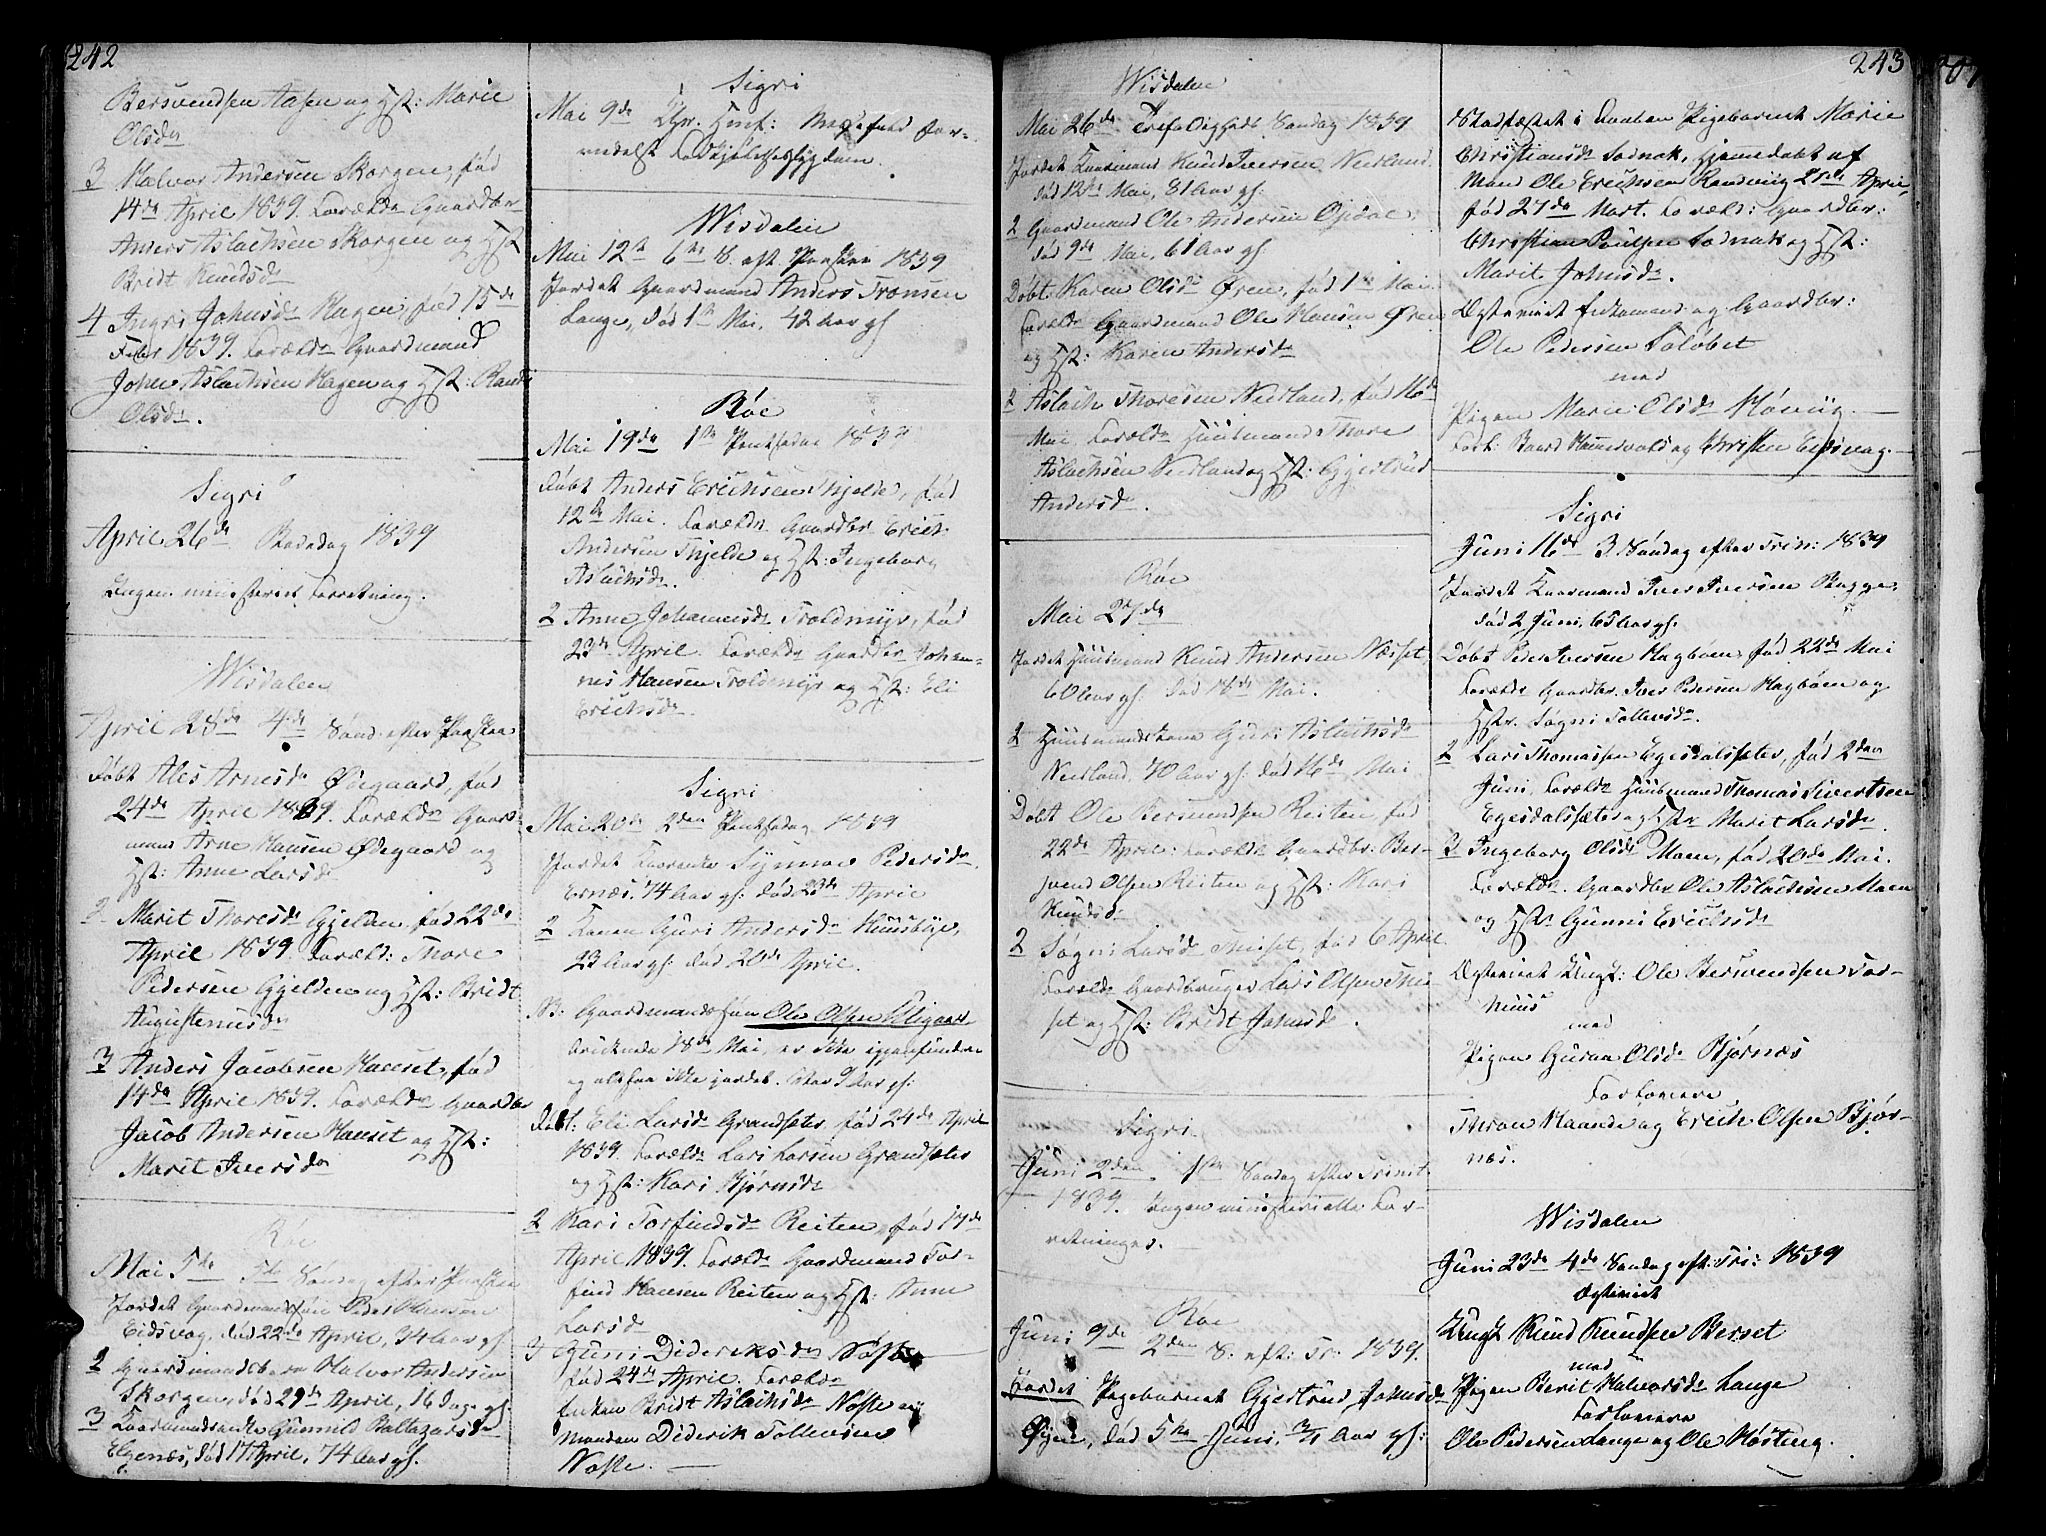 242
Bersvendsen Aasen og Hst: Marie
Olsdr
3 Halvor Andersen Skorgen, fød
14de April 1839. Forældre Gaardbr
Anders Aslachsen Skorgen og Hst
Bridt Knudsdr
4 Ingri Johnsdr Hagen, fød 15de
Febr 1839. Forældre Gaardmand
John Aslachsen Hagen og Hst: Randi
Olsdr.
Sigri
April 26de Bededag 1839
Ingen ministeriel Forretning.
Wisdalen
April 28de 4de Sønd. efter Paaske
Døbt Ales Arnesdr Ødegaard, fød
24de April 1839. Forældre Gaard-
mand Arne Hansen Ødegaard og
Hst: Anne Larsdr
2 Marit Thoresdr Gjelden, fød 22de
April 1839. Foræld: Thore
Pedersen Gjelden og Hst: Bridt
Augustenusdr
3 Anders Jacobsen Hauset, fød
14de April 1839. Forældre Gaardbr
Jacob Andersen Hauset og Hst:
Marit Iversdr
Røe
Mai 5te 5te Søndag efter Paaske
Jordet Gaardmandssøn Peder Hansen
Eidsvaag, død 22de April, 34 Aar gl.
2 Gaardmandsbarn Halvor Andersen
Skorgen, død 29de April, 16 Dage gl
3 Kaarmandsenke Gunnild Baltazarsdr
Elgenæs, død 17 April, 74 Aar gl.
Sigri
Mai 9de Chr. Himf: Messefald for-
medelst
Wisdalen
Mai 12te 6te S. eft. Paaske 1839
Jordet Gaardmand Anders Tronsen
Lange, død 1ste Mai, 42 Aar gl
Røe
Mai 19de 1ste Pintsedag 1839
Døbt Anders Erichsen Thjelde, fød
12te Mai. Forældre Gaardbr Erich
Andersen Thjelde og Hst: Ingeborg
Aslachsdr.
2 Anne Johannesdr Troldmyr, fød
23de April. Forældre Gaardbr Johan-
nes Hansen Troldmyr og Hst: Eli
Erichsdr.
Sigri
Mai 20de 2den Pintsedag 1839
Jordet Kaarenke Synnøv Pedersdr
Ernæs, 74 Aar gl: død 23de April
2 Konen Guri Andersdr Huusbye,
23 Aar gl: død 20de April.
NB: Gaardmandssøn Ole Olsen
druknede 18de Mai, er ikke igjenfunden
og altsaa ikke jordet. Var 9 Aar gl:
Døbt: Eli Larsdr Grandsæter, fød 24de April
1839. Forældre Lars Larsen Grandsæter
og Hst: Kari Bjørnsdr
2 Kari Torfindsdr Reiten, fød 17de
April 1839. Forældre Gaardmand Tor-
find Hansen Reiten og Hst: Anne
Larsdr
3 Guni Dideriksdr Nøste
fød 24de April. Forældre
Enken Bridt Aslachsdr Nøste og
Manden Diderik Tollevsen
Nøste.
243
Wisdalen
Mai 26de Trefoldigheds Søndag 1839
Jordet Kaarmand Knud Iversen Nerland
død 12te Mai, 81 Aar gl:
2 Gaardmand Ole Andersen Opdøl,
død 9de Mai, 61 Aar gl
Døbt Karen Olsdr Øren, fød 1ste Mai.
Forældre Gaardmand Ole Hansen Øren
og Hst: Karen Andersdr
2 Aslach Thoresen Nerland, fød 16de
Mai. Forældre Huusmand Thore
Aslachsen Nerland og Hst: Gjertrud
Andersdr.
Røe
Mai 27de
Jordet Huusmand Knud Andersen Næsset
60 Aar gl. død 18de Mai.
2 Huusmandskone Gidri Aslachsdr
Nerland, 70 Aar gl: død 16de Mai
Døbt Ole Bersvendsen Reiten, fød
22de April. Forældre Gaardbr: Ber-
svend Olsen Reiten og Hst: Kari
Knudsdr
2 Søgni Larsdr Thiset, fød 6 April.
Forældre Gaardbruger Lars Olsen Thi-
set og Hst: Bridt Johnsdr.
Sigri
Juni 2den 1ste Søndag efter Trinit
1839. Ingen ministerielle For-
retninger.
Røe
Juni 9de 2den S. eft: Tr: 1839.
Jordet Pigebarnet Gjertrud Johnsdr
Øien, død 5te Juni, 3/4 Aar gl:
Stadfæstet i Daaben Pigebarnet Marie
Christiansdr Sødnak, hjemmedøbt af
Mand Ole Erichsen Randviig 21de April,
fød 27de Mart. Foræld: Gaardbr:
Christian Poulsen Sødnak og Hst:
Marit Johnsdr.
Ægteviet Enkemand og Gaardbr:
Ole Pedersen Søløbet
med
Pigen Marie Olsdr Høeviig
Forl: Baard Hammervold og Christen Eidsvaag.
Sigri
Juni 16de 3 Søndag efter Trin: 1839
Jordet Kaarmand Iver Iversen Bugge.
død 2 Juni, 65 Aar gl:
Døbt Peder Iversen Hagbøen, fød 22de Mai
Forældre Gaardbr. Iver Pedersen Hagbøen og
Hstr. Søgni Tollevsdr.
2 Lars Thomassen Egesdalssæter, fød 2den
Juni. Forældre Huusmand Thomas Sivertsen
Egesdalssæter og Hstr Marit Larsdr
3 Ingeborg Olsdr Moen, fød 20de Mai.
Forældre. Gaardbr Ole Aslachsen Moen
og Hstr Gunni Erichsdr
Ægteviet Ungk: Ole Bersvendsen Tor-
huus
med
Pigen Guraa Olsdr Bjørnæs
Forlovere
Thron Haande og Erich Olsen Bjør-
næs.
Wisdalen
Juni 23de 4de Søndag eft: Tri: 1839
Ægteviet
Ungk Knud Knudsen Berset
med
Pigen Berit Halvorsdr Lange
Forlovere
Ole Pedersen Lange og Ole Høsteng.